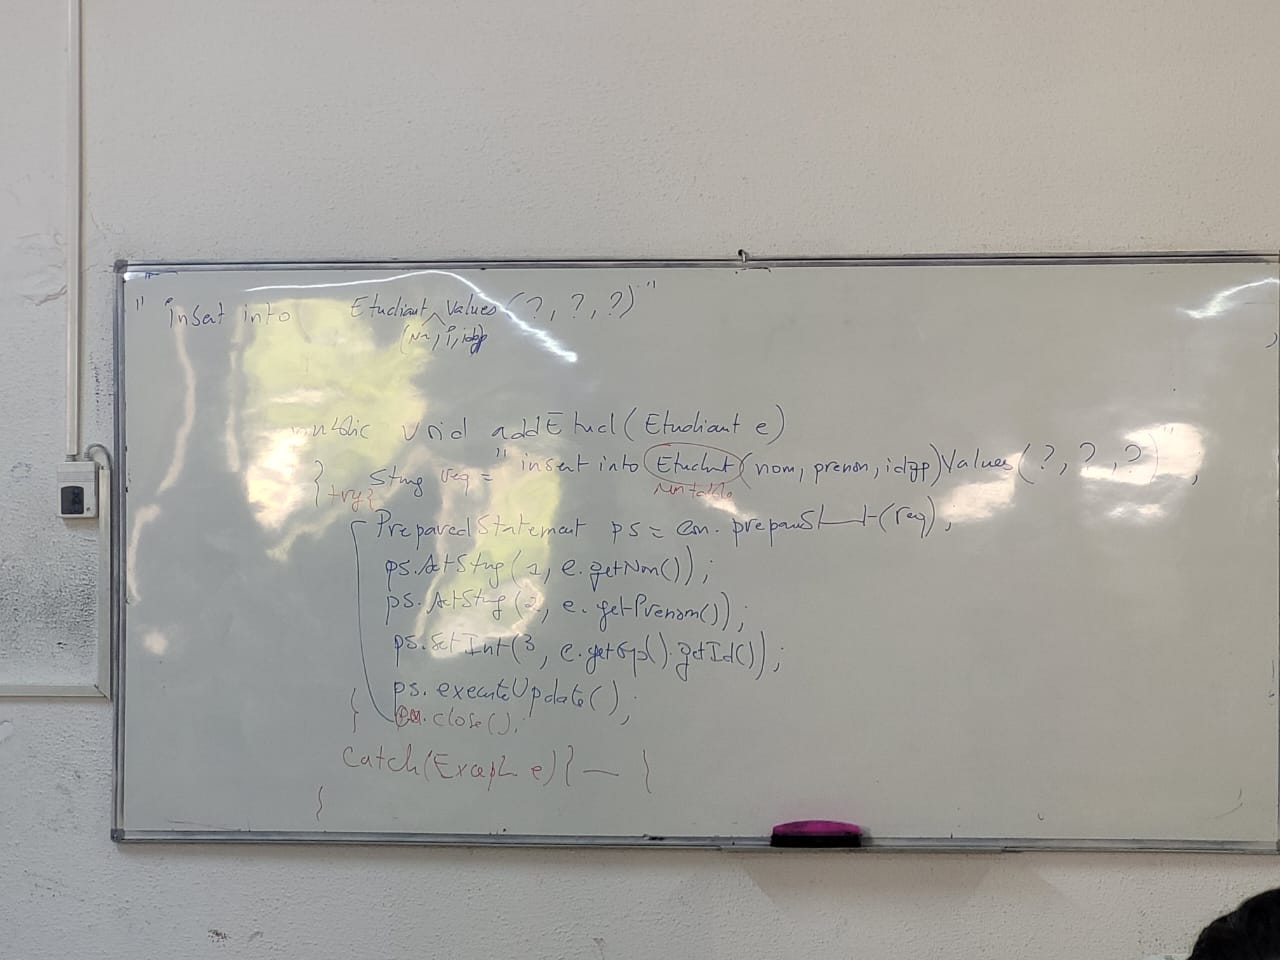 " insert into Etudiant Values (?, ?, ?) "
(N, P, idgp)
public void addEtud (Etudiant e)
{ String req = " insert into Etudiant (nom, prenom, idgp) Values (?, ?, ?) " ;
try{ Nom table
PreparedStatement ps = cn. prepareSt t (req) ;
ps. setString (1, e. getNom()) ;
ps. setString (2, e. getPrenom()) ;
ps. setInt (3, e. getGp(). getId()) ;
ps. executeUpdate() ;
} .close();
catch (Except e) { — }
}